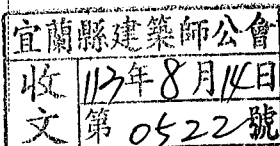 宜蘭縣建築師公會
收文
113年8月14日
第0522號